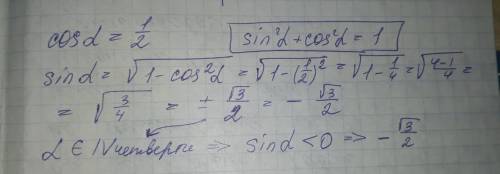 cosα = 1/2   sin²α + cos²α = 1
sinα = √(1 - cos²α) = √(1 - (1/2)²) = √(1 - 1/4) = √((4-1)/4) =
= √(3/4) = ± √3/2 = - √3/2
α ∈ IV четверти => sinα < 0 => - √3/2